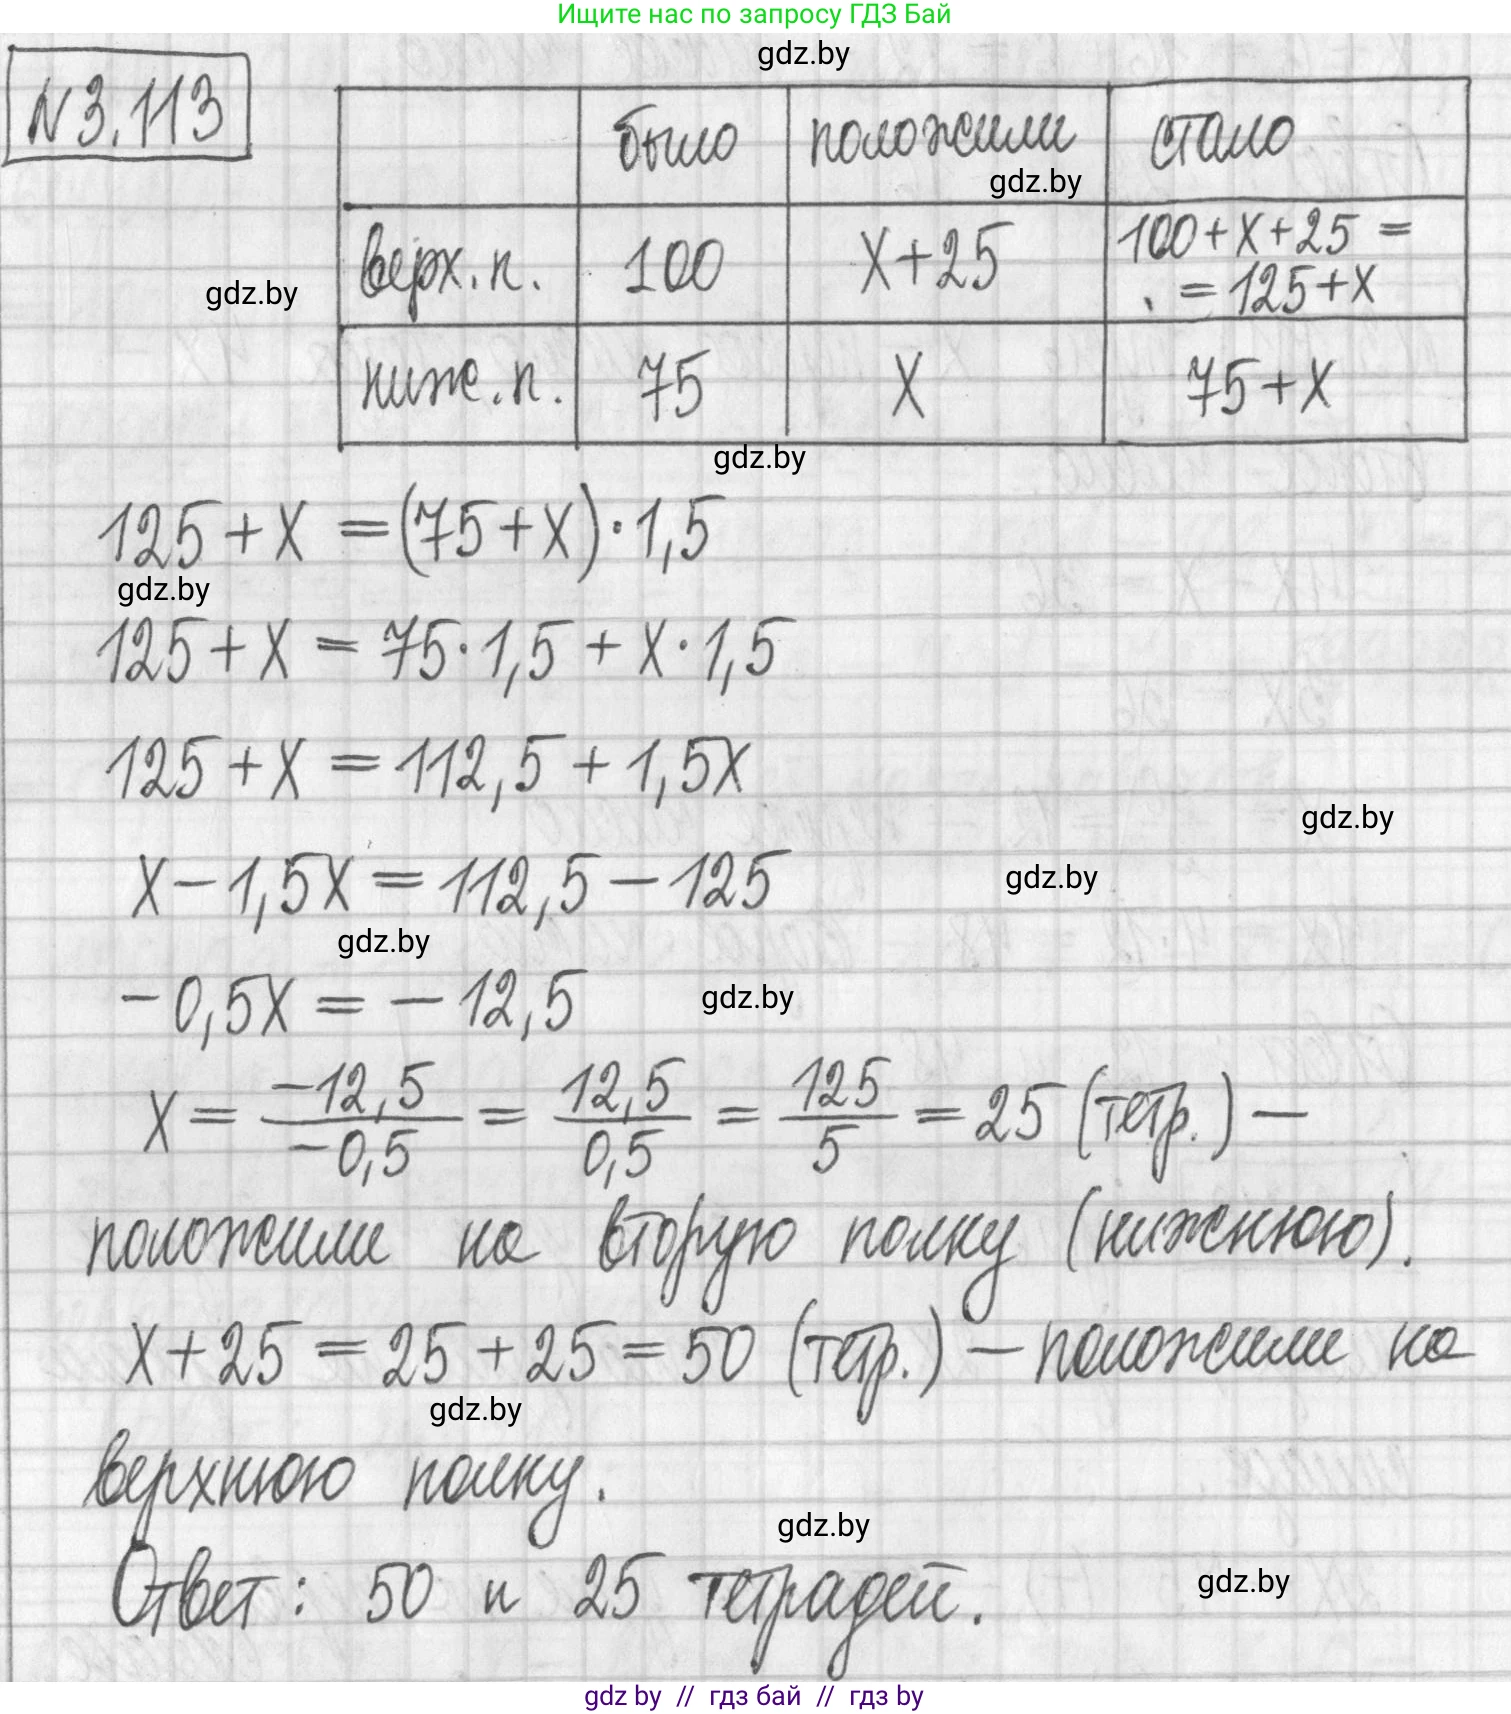 Ищите нас по запросу ГДЗ Бай
gdz.by
N 3.113
было положили стало
gdz.by
верх.п. 100 x+25 100+x+25 =
= 125+x
gdz.by
ниж.п. 75 x 75+x
gdz.by
125+x = (75+x)·1,5
gdz.by
125+x = 75·1,5 + x·1,5
125+x = 112,5 + 1,5x
gdz.by
x-1,5x = 112,5-125
gdz.by
gdz.by
-0,5x = -12,5
gdz.by
x = -12,5/-0,5 = 12,5/0,5 = 125/5 = 25 (тетр.) —
положили на вторую полку (нижнюю).
x+25 = 25+25 = 50 (тетр.) — положили на
gdz.by
верхнюю полку.
gdz.by
Ответ: 50 и 25 тетрадей.
gdz.by
gdz by // гдз бай // гдз by